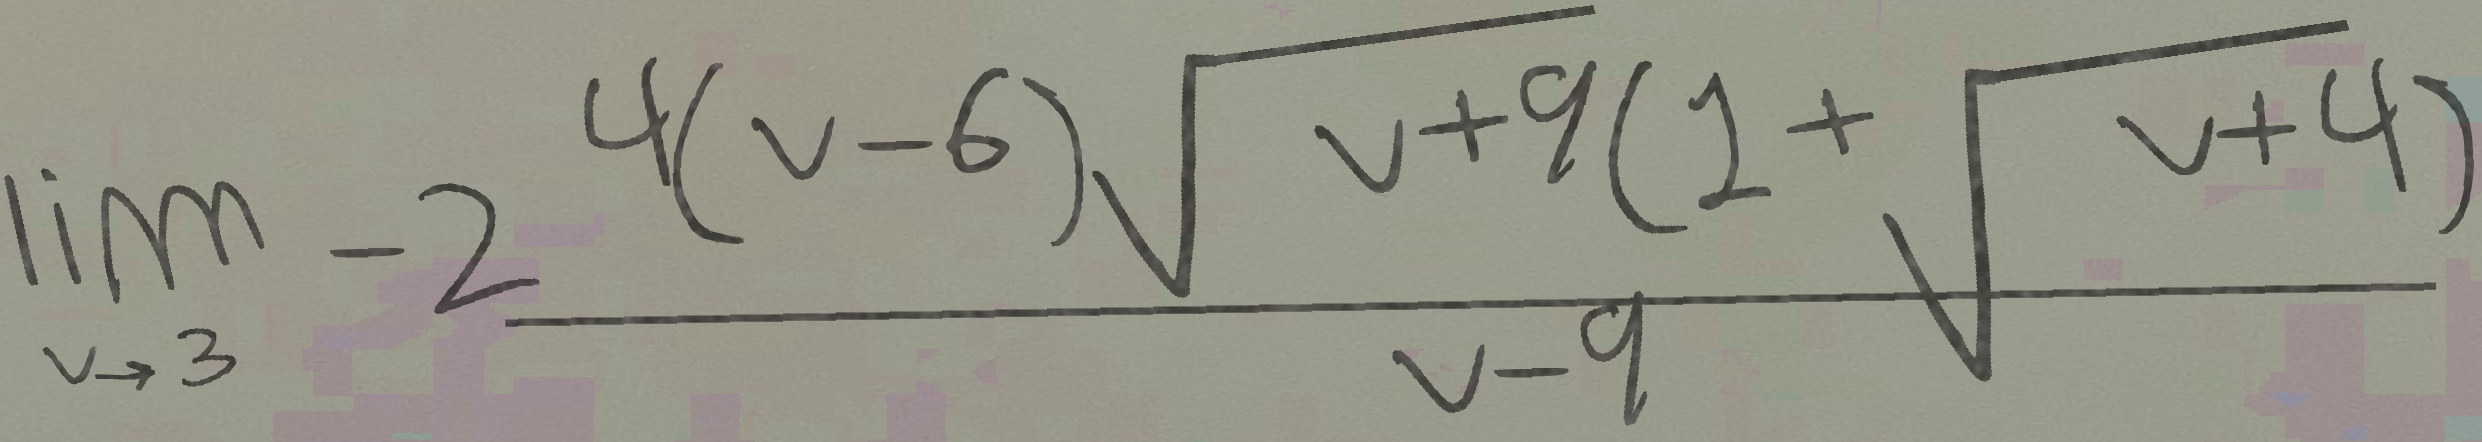 \lim_{v \to 3} -2 \frac{4(v-6)\sqrt{v+9}(1+\sqrt{v+4})}{v-9}